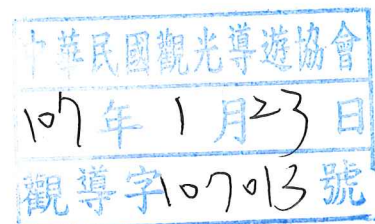 中華民國觀光導遊協會
107年1月23日
觀導字107013號